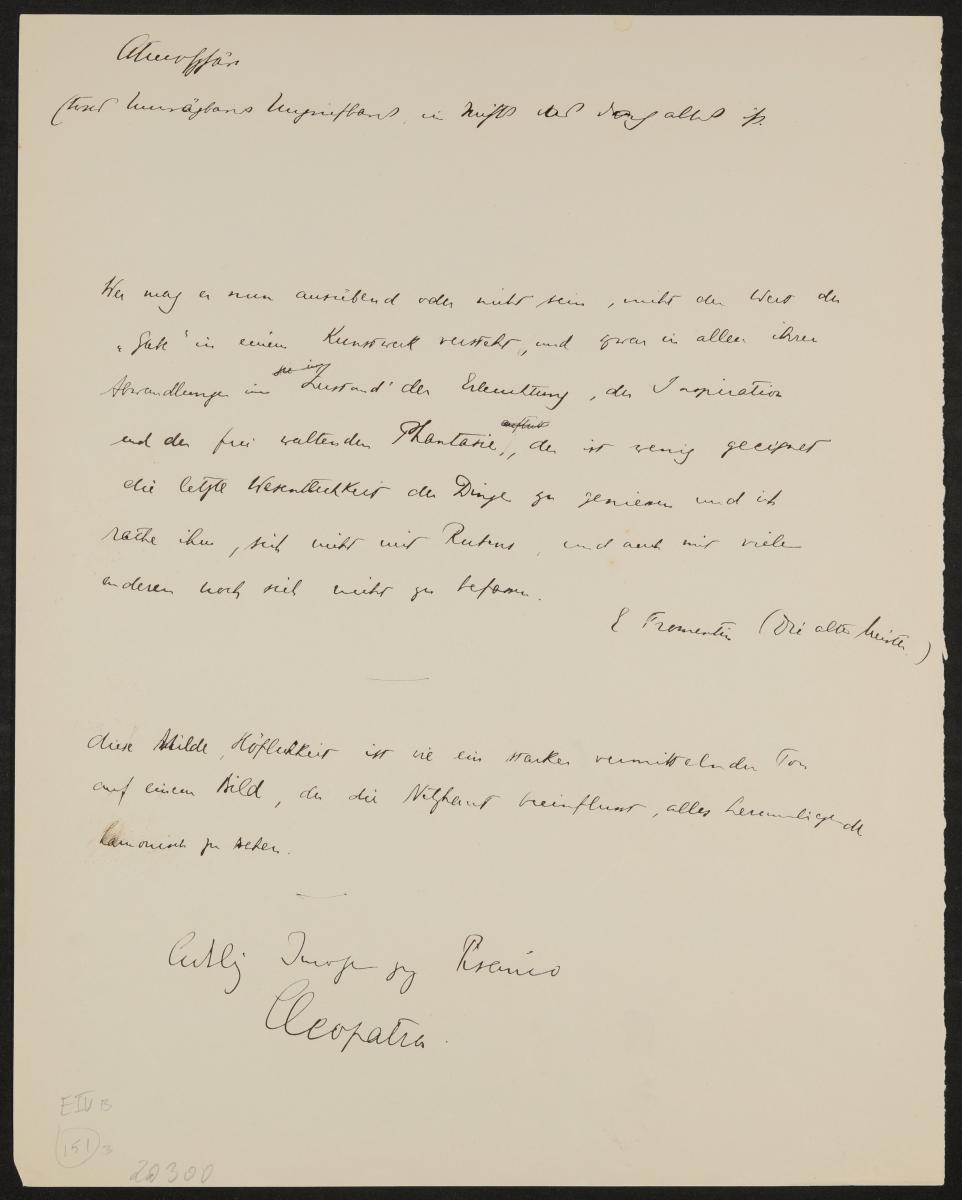 Atmosphär
(Dieses Unwägbare Ungreifbare, ein Nichts das doch alles ist.
Wer mag er nun ausübend oder nicht sein, nicht den Wert der
„Gabe" in einem Kunstwerk versteht, und zwar in allen ihren
Abwandlungen im Zustand der Erleuchtung, der Inspiration
und der frei waltenden Phantasie, der ist wenig geeignet
die letzte Wesentlichkeit der Dinge zu geniessen und ich
rathe ihm, sich nicht mit Rubens, und auch mit vielen
anderen noch sich nicht zu befassen.
E Fromentin (Die alten Meister.)
diese Milde, Höflichkeit ist wie ein starker vermittelnder Ton
auf einem Bild, der die Netzhaut beeinflusst, alles herumliegende
harmonisch zu sehen.
Cleopatra.
E IV B
151 3
20300